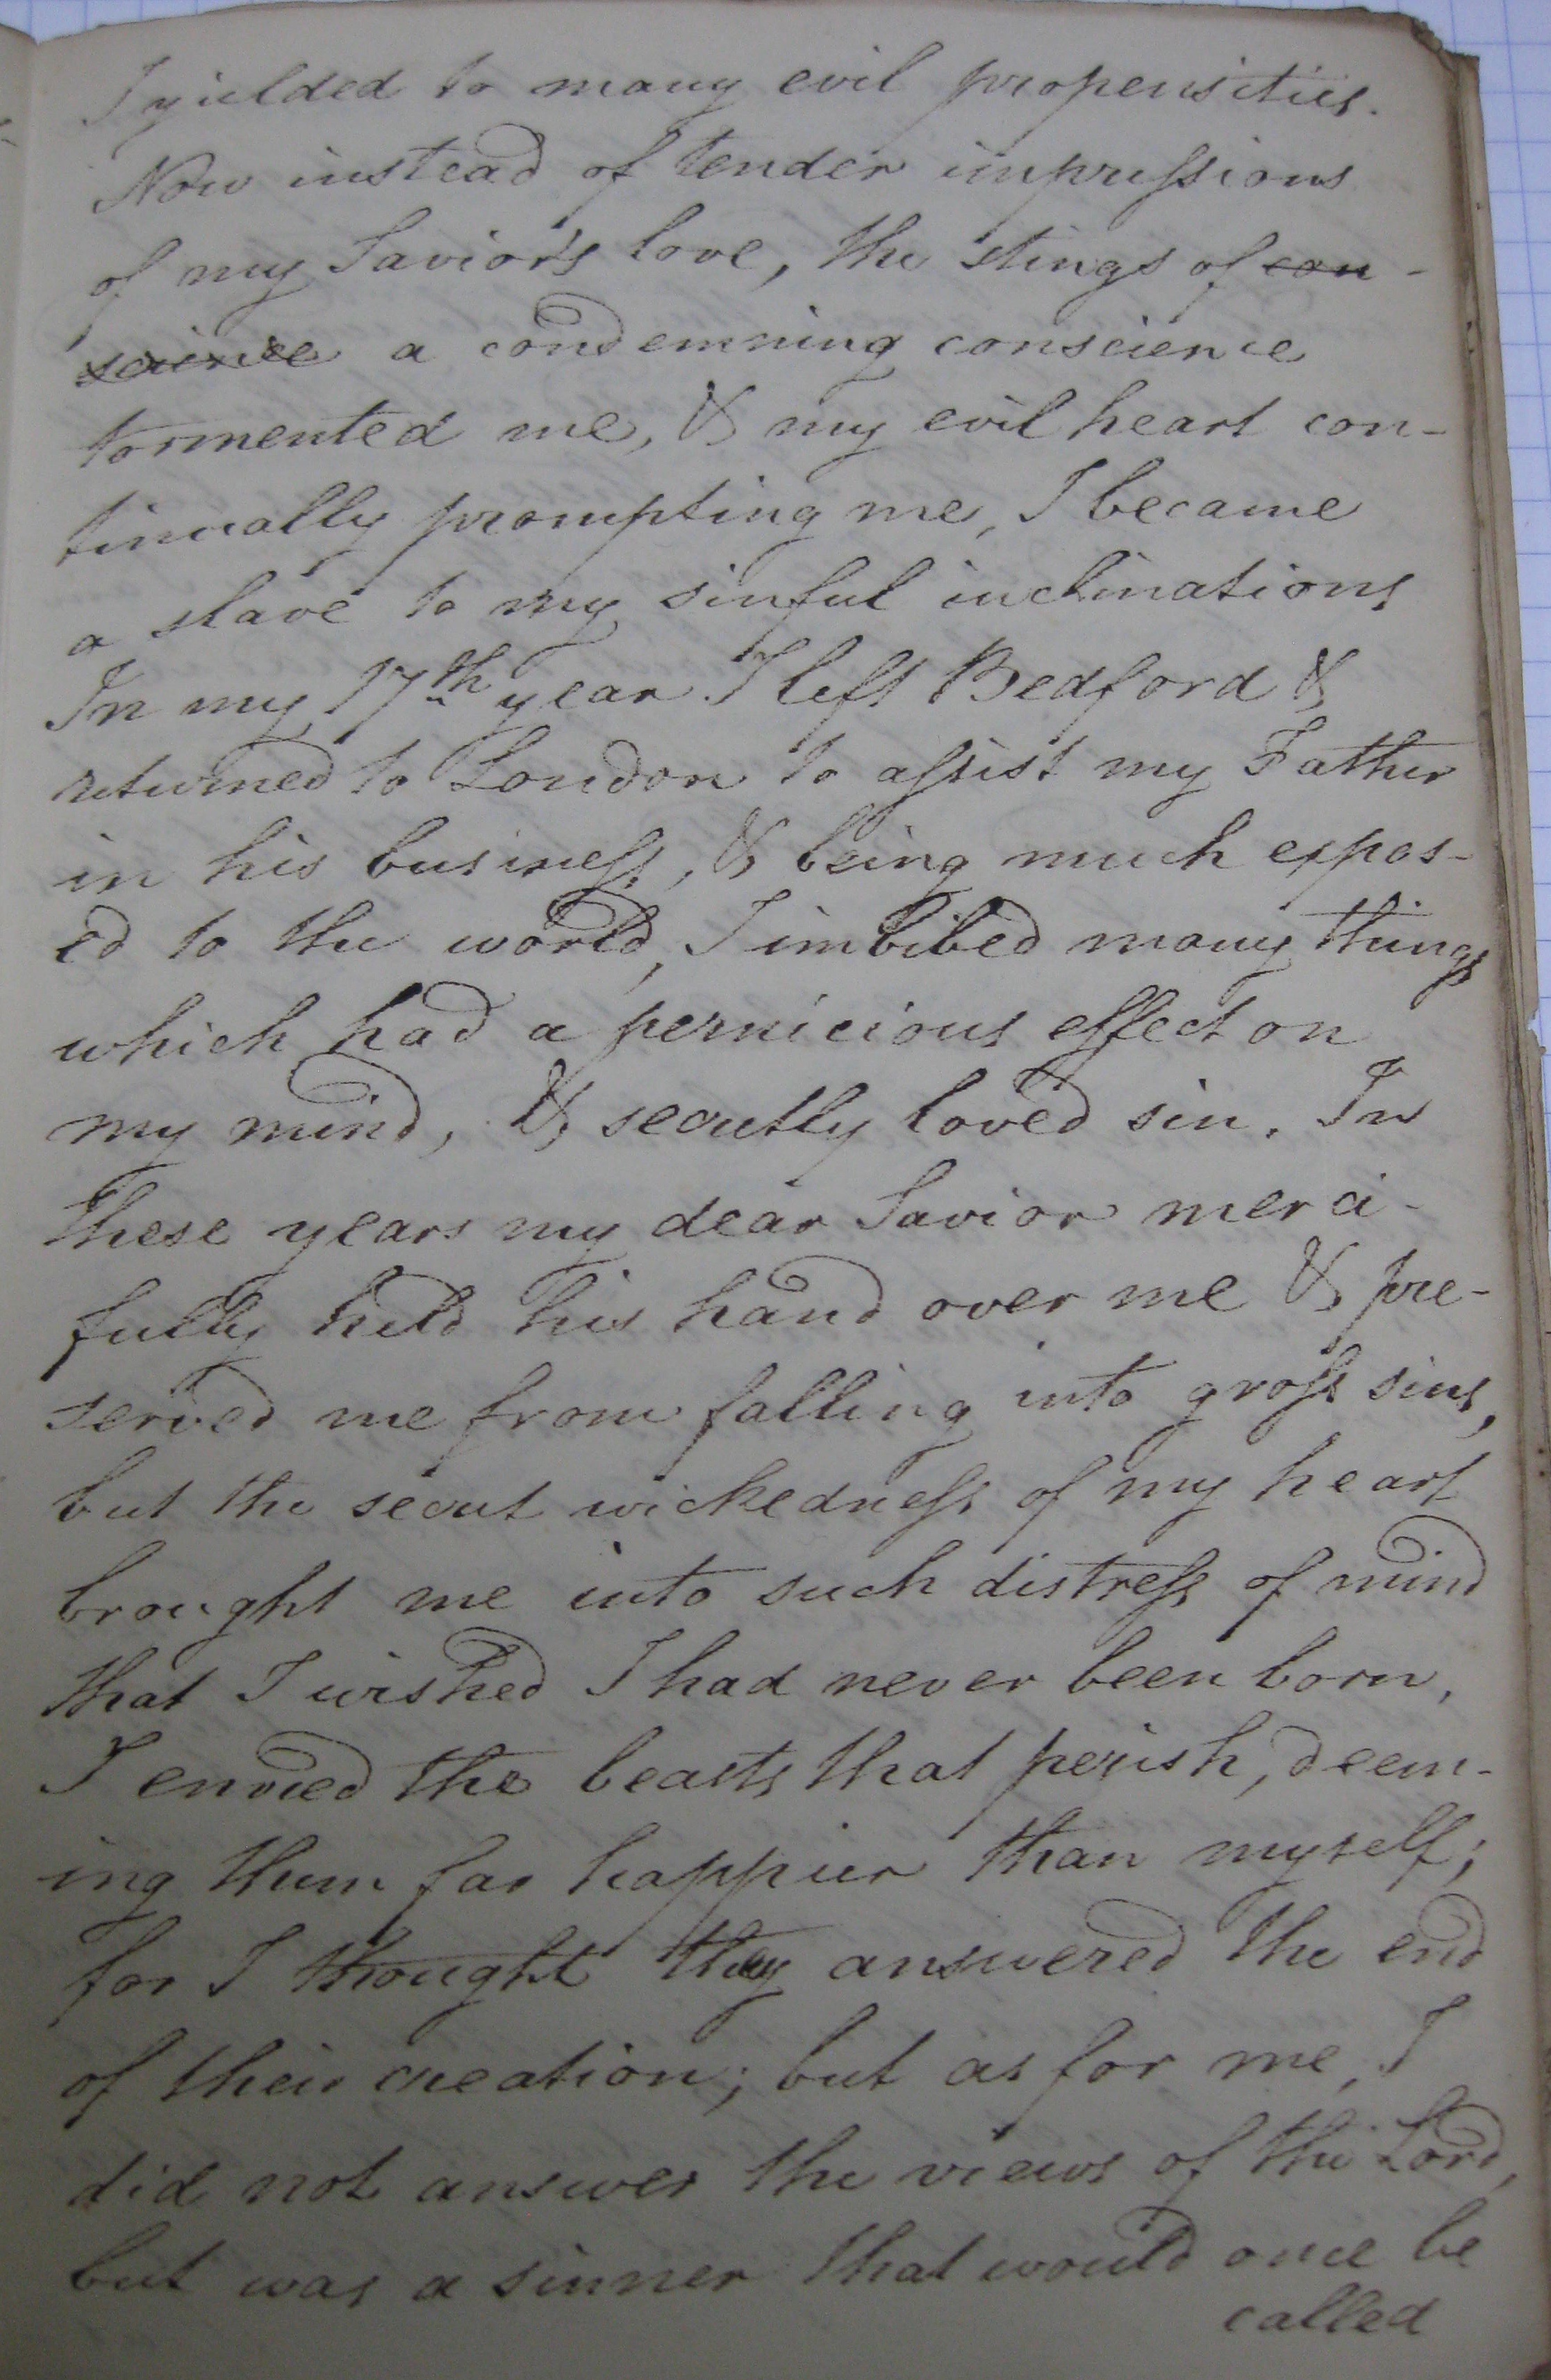 I yielded to many evil propensities.
Now instead of tender impreſsions
of my Savior's love, the stings of con-
science a condemning conscience
tormented me, & my evil heart con-
tinually prompting me, I became
a slave to my sinful inclinations
In my 17th year I left Bedford &
returned to London to aſsist my Father
in his busineſs, & being much expos-
ed to the world, I imbibed many things
which had a pernicious effect on
my mind, & secretly loved sin. In
these years my dear Savior merci-
fully held his hand over me & pre-
served me from falling into groſs sins,
but the secret wickedneſs of my heart
brought me into such distreſs of mind
that I wished I had never been born,
I envied the beasts that perish, deem-
ing them far happier than myself;
for I thought they answered the end
of their creation; but as for me, I
did not answer the views of the Lord,
but was a sinner that would once be
called